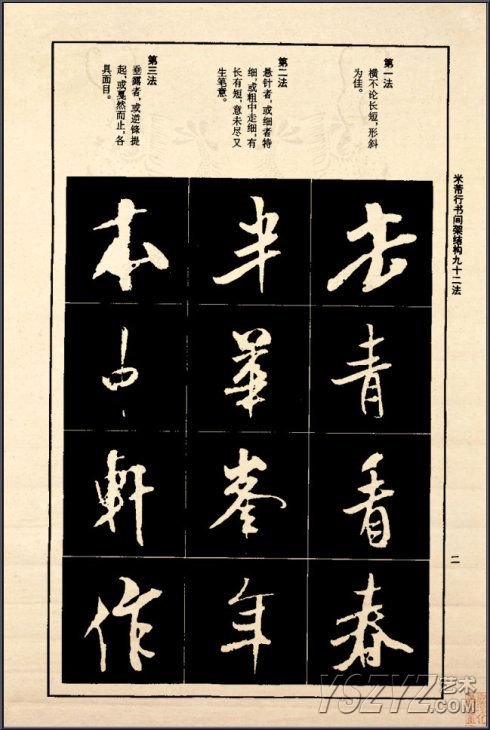 米芾行书间架结构九十二法
二
第一法
横不论长短，形斜
为佳。
第二法
悬针者，或细者特
细，或粗中走细，有
长有短，意未尽又
生笔意。
第三法
垂露者，或逆锋提
起，或戛然而止，各
具面目。
青看春
半華峯年
本中軒作
YSZYZ艺术
.COM